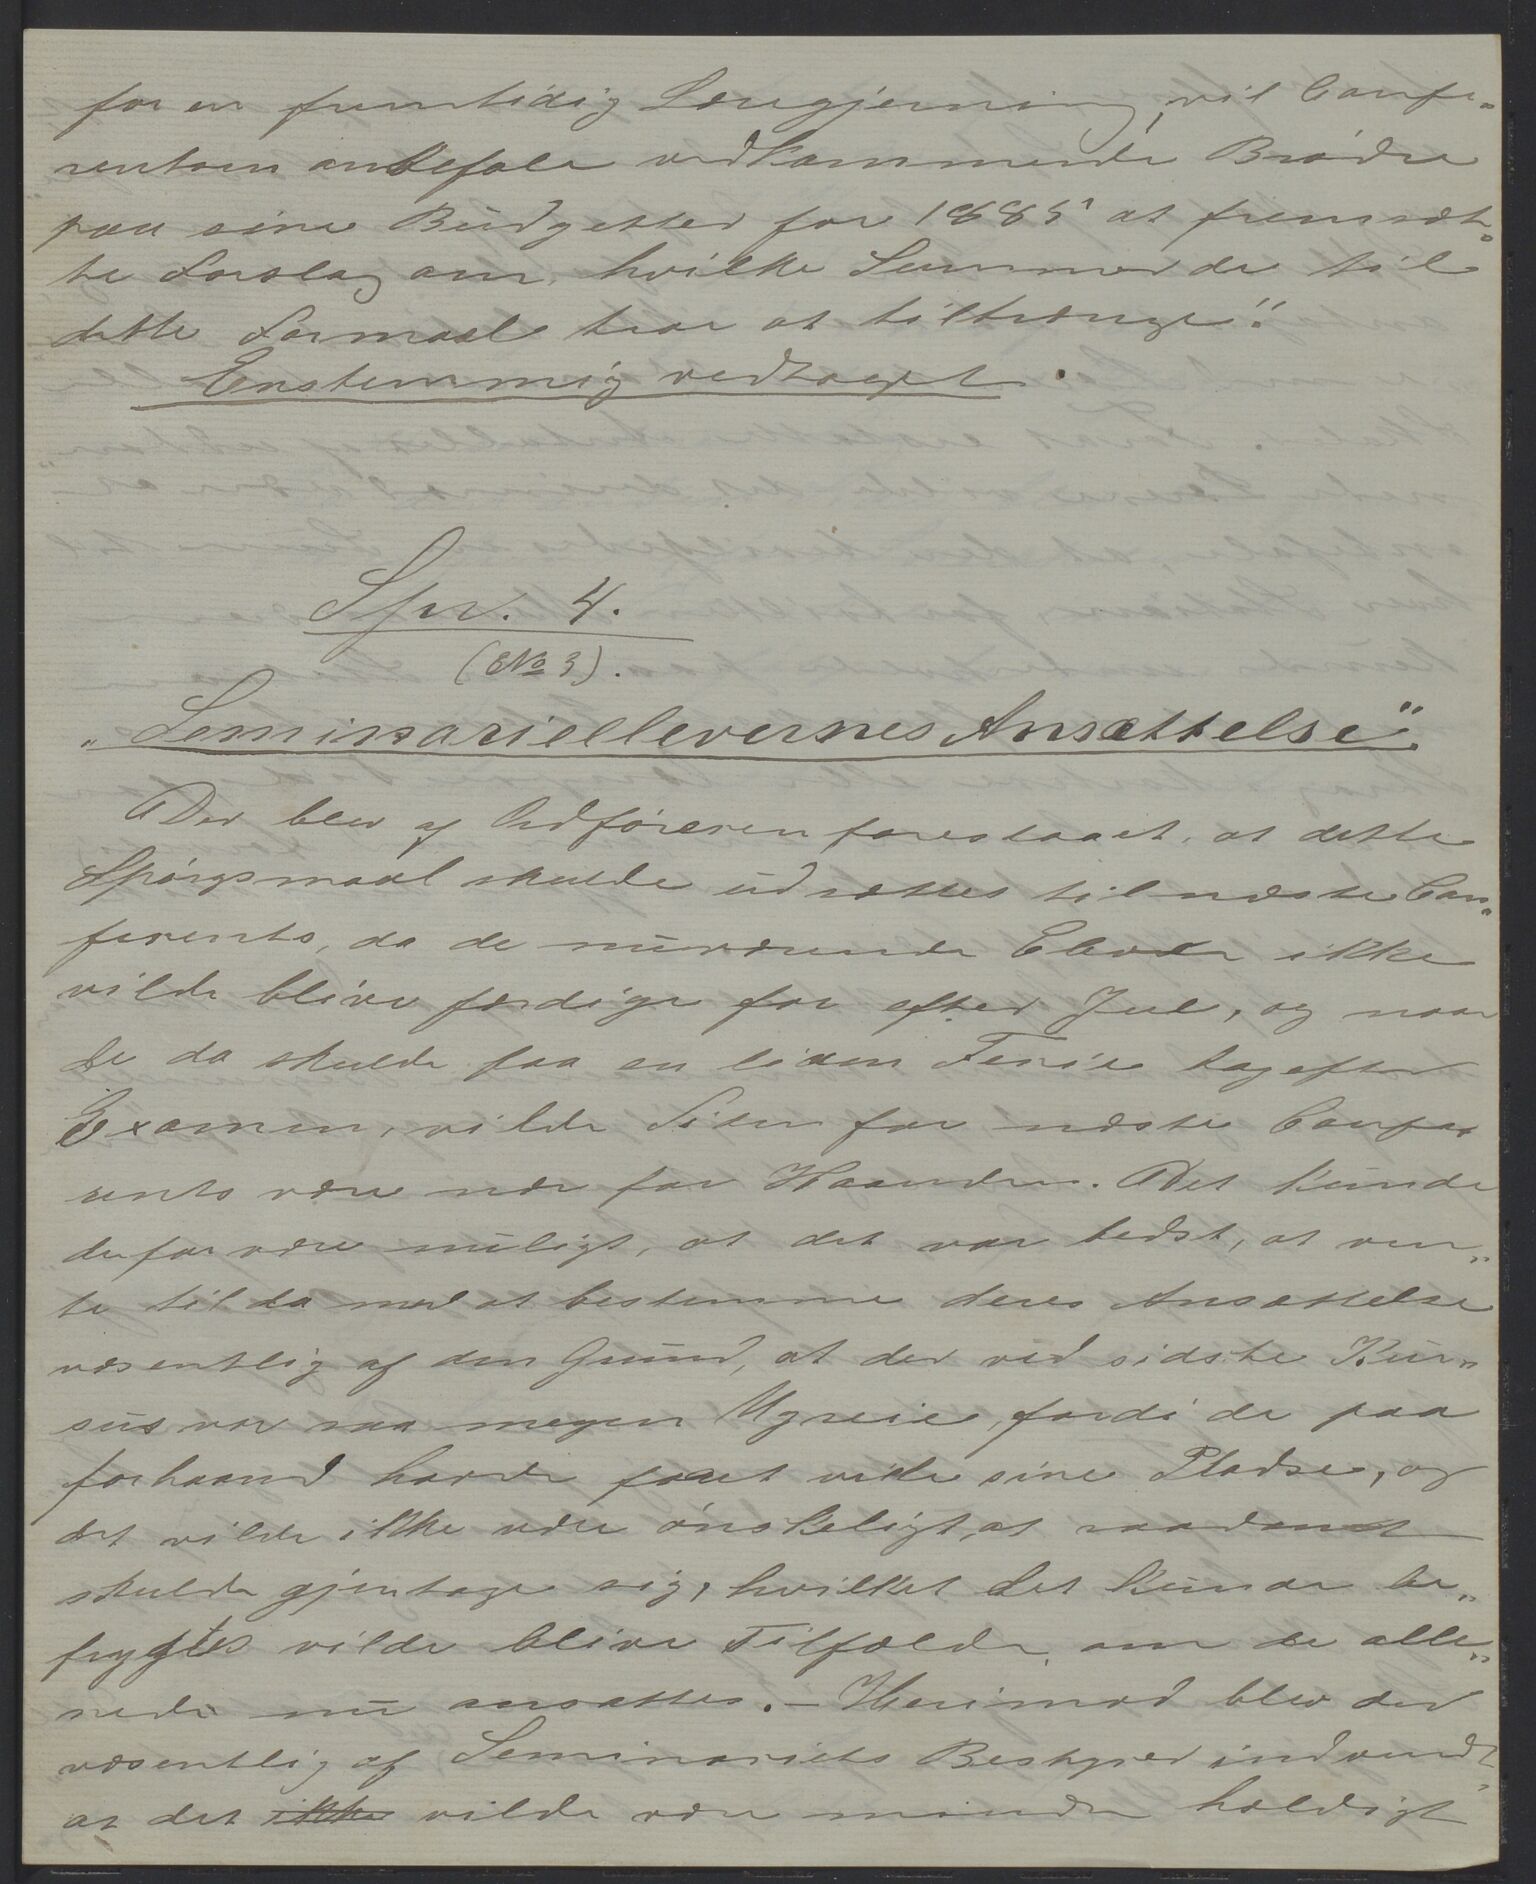 for en fremtidig Lærergjerning, vil Confe„
rentsen anbefale vedkommende Brødre
paa sine Budgetter for 1885 at fremsæt„
te Forslag om, hvilke Summer de til
dette Formaal tror at tiltrænge".
Enstemmig vedtaget.
Spr. 4.
(No 3).
„Seminarieellevernes Ansættelse".
Der blev af Ordføreren foreslaaet, at dette
Spørgsmaal skulde udsættes til næste Con„
ferents, da de nuværende Elever ikke
vilde blive færdige før efter Jul, og naar
de da skulde faa en liden Ferie bagefter
Examen, vilde Tiden for næste Confe
rents være nær for Haanden. Det kunde
derfor være muligt, at det var bedst, at ven„
te til da med at bestemme deres Ansættelse
væsentlig af den Grund, at der ved sidste Kur„
sus var saa megen Ugreie, fordi de paa
forhaand havde faaet vide sine Pladse, og
det vilde ikke være ønskeligt, at saadant
skulde gjentage sig, hvilket det kunde be„
frygtes vilde blive Tilfælde, om de alle„
rede nu ansattes. – Herimod blev der
væsentlig af Seminariets Bestyrer indvendt,
at det ikke vilde være mindre heldigt